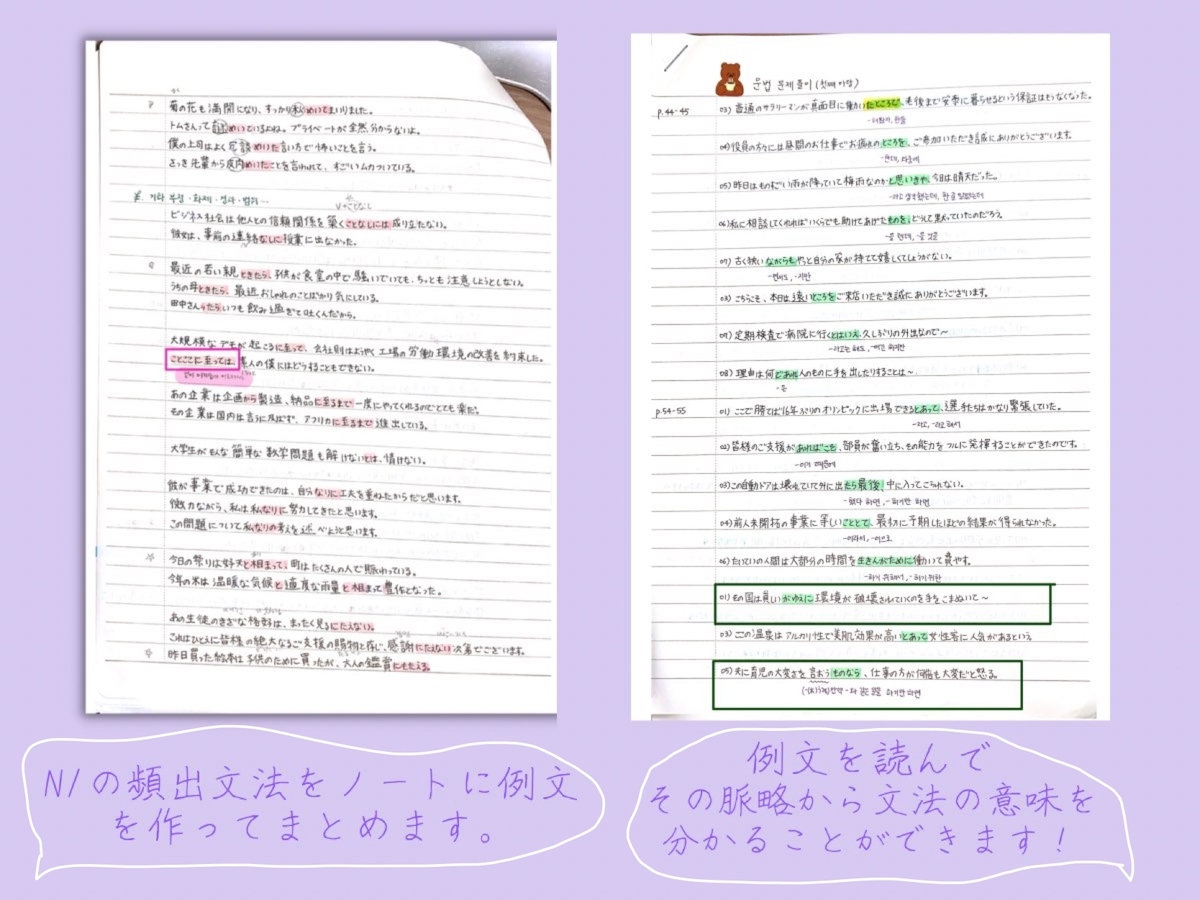 菊の花も満開になり、すっかり秋めいてまいりました。
トムさんって謎めいているよね。プライベートが全然分からないよ。
僕の上司はよく冗談めいた言い方で怖いことを言う。
さっき先輩から皮肉めいたことを言われて、すごいムカついている。
기타 부정・화제・정도・범위…
V+ことなし
ビジネス社会は他人との信頼関係を築くことなしには成り立たない。
彼女は、事前の連絡なしに授業に出なかった。
最近の若い親ときたら、子供が食堂の中で騒いでいても、ちっとも注意しようとしない。
うちの母ときたら、最近おしゃれのことばかり気にしている。
田中さんったらいつも飲み過ぎて吐くんだから。
大規模なデモが起こるに至って、会社側はようやく工場の労働環境の改善を約束した。
ことここに至っては、素人の僕にはどうすることもできない。
あの企業は企画から製造、納品に至るまで一度にやってくれるのでとても楽だ。
その企業は国内は言うに及ばず、アフリカに至るまで進出している。
大学生がそんな簡単な数学問題も解けないとは、情けない。
彼が事業で成功できたのは、自分なりに工夫を重ねたからだと思います。
微力ながら、私は私なりに努力してきたと思います。
この問題について私なりの考えを述べようと思います。
今日の祭りは好天と相まって、町はたくさんの人で賑わっている。
今年の米は温暖な気候と適度な雨量と相まって豊作となった。
あの生徒のきざな格好は、まったく見るにたえない。
これはひとえに皆様の絶大なるご支援の賜物と存じ、感謝にたえない次第でございます。
昨日買った絵本は子供のために買ったが、大人の鑑賞にもたえる。
N1の頻出文法をノートに例文
を作ってまとめます。
문법 문제 풀이 (첫째 마당)
p.44-45
03) 普通のサラリーマンが真面目に働いたところで、老後まで安泰に暮らせるという保証はもうなくなった。
-더라도, 한들
04) 役員の方々には昼間のお仕事でお疲れのところを、ご参加いただき誠にありがとうございます。
-한데, 와중에
05) 昨日はものすごい雨が降っていて梅雨なのかと思いきや、今日は晴天だった。
-라고 생각했는데, 한 줄 알았는데
06) 私に相談してくれればいくらでも助けてあげたものを、どうして黙っていたのだろう。
-을 텐데, -을 것을
07) 古く狭いながらもやっと自分の家が持てて嬉しくてしょうがない。
-면서도, -지만
03) こちらこそ、本日は遠いところをご来店いただき誠にありがとうございます。
07) 定期検査で病院に行くとはいえ、久しぶりの外出なので～
-라고는 해도, -이긴 하지만
08) 理由は何であれ人のものに手を出したりすることは～
-든
p.54-55
01) ここで勝てば16年ぶりのオリンピックに出場できるとあって、選手たちはかなり緊張していた。
-라고, -라고 해서
02) 皆様のご支援があればこそ、部員が奮い立ち、その能力をフルに発揮することができたのです。
-이기 때문에
03) この自動ドアは壊れていて外に出たら最後、中に入ってこられない。
-했다 하면, -하기만 하면
04) 前人未開拓の事業に等しいこととて、最初に予期したほどの結果が得られなかった。
-이라서, -이므로
06) たいていの人間は大部分の時間を生きんがために働いて費やす。
-하기 위해서, -하기 위한
01) その国は貧しいがゆえに環境が破壊されていくのを手をこまぬいて～
03) ここの温泉はアルカリ性で美肌効果が高いとあって女性客に人気があるという。
05) 夫に育児の大変さを言おうものなら、仕事の方が何倍も大変だと怒る。
例文を読んで
その脈略から文法の意味を
分かることができます！